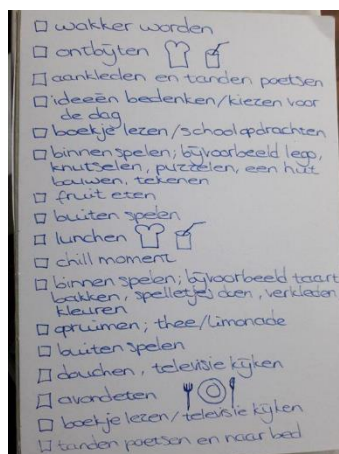 wakker worden
ontbijten
aankleden en tanden poetsen
ideeën bedenken/kiezen voor
de dag
boekje lezen/schoolopdrachten
binnen spelen; bijvoorbeeld lego,
knutselen, puzzelen, een hut
bouwen, tekenen
fruit eten
buiten spelen
lunchen
chill moment
binnen spelen; bijvoorbeeld taart
bakken, spelletjes doen, verkleden
kleuren
opruimen; thee/limonade
buiten spelen
douchen, televisie kijken
avondeten
boekje lezen/televisie kijken
tanden poetsen en naar bed